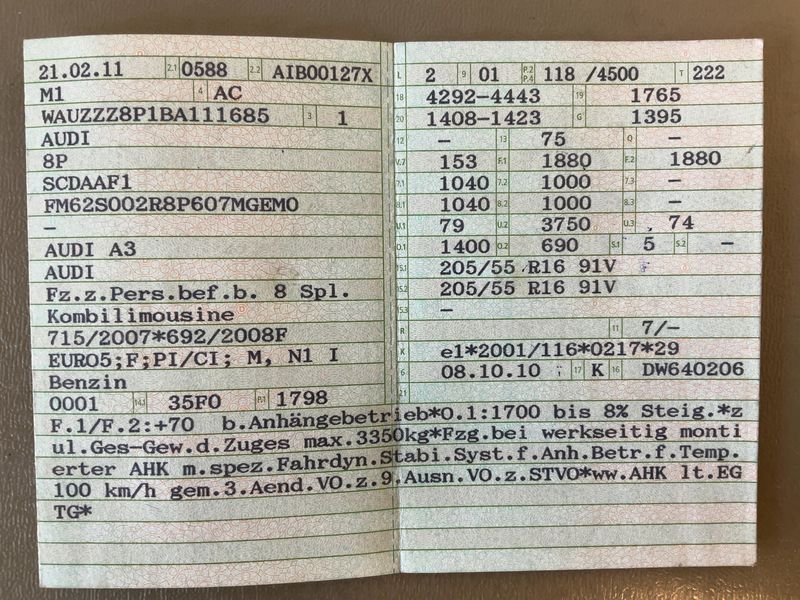 21.02.11 2.1 0588 2.2 AIB00127X
M1 4 AC
WAUZZZ8P1BA111685 3 1
AUDI
8P
SCDAAF1
FM62S002R8P607MGEM0
–
AUDI A3
AUDI
Fz.z.Pers.bef.b. 8 Spl.
Kombilimousine
715/2007*692/2008F
EURO5;F;PI/CI; M, N1 I
Benzin
0001 14.1 35F0 P.1 1798
L 2 9 01 P.2 P.4 118 /4500 T 222
18 4292-4443 19 1765
20 1408-1423 G 1395
12 – 13 75 Q –
V.7 153 F.1 1880 F.2 1880
7.1 1040 7.2 1000 7.3 –
8.1 1040 8.2 1000 8.3 –
U.1 79 U.2 3750 U.3 74
O.1 1400 O.2 690 S.1 5 S.2 –
15.1 205/55 R16 91V
15.2 205/55 R16 91V
15.3 –
R 11 7/–
K e1*2001/116*0217*29
6 08.10.10 17 K 16 DW640206
21
F.1/F.2:+70 b.Anhängebetrieb*O.1:1700 bis 8% Steig.*z
ul.Ges-Gew.d.Zuges max.3350kg*Fzg.bei werkseitig monti
erter AHK m.spez.Fahrdyn.Stabi.Syst.f.Anh.Betr.f.Temp.
100 km/h gem.3.Aend.VO.z.9.Ausn.VO.z.STVO*ww.AHK lt.EG
TG*